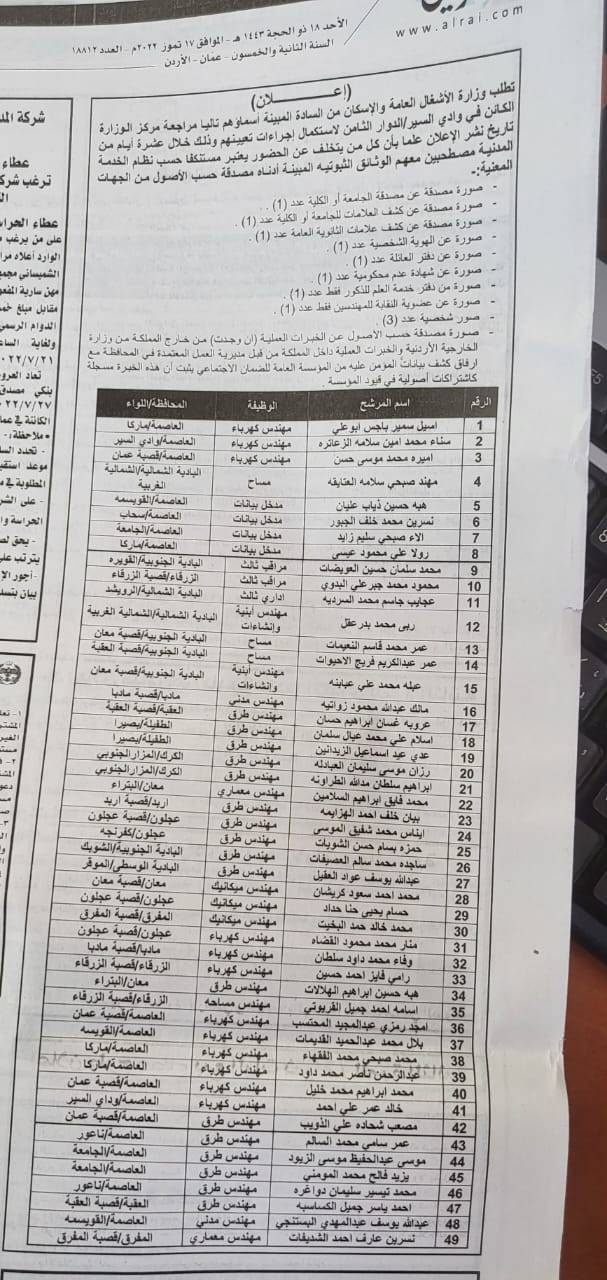 www.alrai.com
الأحد ١٨ ذو الحجة ١٤٤٣ هـ - الموافق ١٧ تموز ٢٠٢٢م - العدد ١٨٨١٢
السنة الثانية والخمسون - عمان - الأردن
(إعــــلان)
تطلب وزارة الأشغال العامة والإسكان من السادة المبينة أسماؤهم تاليا مراجعة مركز الوزارة
الكائن في وادي السير/الدوار الثامن لاستكمال إجراءات تعيينهم وذلك خلال عشرة أيام من
تاريخ نشر الإعلان علما بأن كل من يتخلف عن الحضور يعتبر مستنكفا حسب نظام الخدمة
المدنية مصطحبين معهم الوثائق الثبوتيه المبينة أدناه مصدقة حسب الأصول من الجهات
المعنية:-
- صورة مصدقة عن مصدقة الجامعة أو الكلية عدد (1) .
- صورة مصدقة عن كشف العلامات للجامعة أو الكلية عدد (1) .
- صورة مصدقة عن كشف علامات الثانوية العامة عدد (1) .
- صورة عن الهوية الشخصية عدد (1) .
- صورة عن دفتر العائلة عدد (1) .
- صورة عن شهادة عدم محكومية عدد (1) .
- صورة من دفتر خدمة العلم للذكور فقط عدد (1) .
- صورة عن عضوية النقابة للمهندسين فقط عدد (1) .
- صور شخصية عدد (3)
- صورة مصدقة حسب الأصول عن الخبرات العملية (إن وجدت) من خارج المملكة من وزارة
الخارجية الأردنية والخبرات العملية داخل المملكة من قبل مديرية العمل المعتمدة في المحافظة مع
ارفاق كشف بيانات المؤمن عليه من المؤسسة العامة للضمان الاجتماعي يثبت أن هذه الخبرة مسجلة
كاشتراكات أصولية في قيود المؤسسة .
الرقم اسم المرشح الوظيفة المحافظة/اللواء
1 اسيل سمير باجس ابوعلي مهندس كهرباء العاصمة/ماركا
2 سناء محمد امين سلامه الزعاتره مهندس كهرباء العاصمة/وادي السير
3 اميره محمد موسى حسن مهندس كهرباء العاصمة/قصبة عمان
4 مهند صبحي سلامه العتايقه مساح البادية الشمالية/الشمالية الغربية
5 هبه حسين ذياب عليان مدخل بيانات العاصمة/القويسمه
6 نسرين محمد خلف الجبور مدخل بيانات العاصمة/سحاب
7 الاء صبحي سليم زايد مدخل بيانات العاصمة/الجامعة
8 رولا علي محمود عيسى مدخل بيانات العاصمة/ماركا
9 محمد سلمان حسين العويضات مراقب ثالث البادية الجنوبية/القويره
10 محمود محمد جبر علي البدوي مراقب ثالث الزرقاء/قصبة الزرقاء
11 عجايب جاسم محمد السرديه اداري ثالث البادية الشمالية/الرويشد
12 ربى محمد بدر عقل مهندس أبنية وإنشاءات البادية الشمالية/الشمالية الغربية
13 عمر محمد قاسم النعيمات مساح البادية الجنوبية/قصبة معان
14 عمر عبدالكريم فريج الاحيوات مساح البادية الجنوبية/قصبة العقبة
15 عبله محمد علي عبابنه مهندس أبنية وإنشاءات البادية الجنوبية/قصبة معان
16 مالك عبدالله محمود زواتيه مهندس مدني مادبا/قصبة مادبا
17 عروبه غسان ابراهيم حسان مهندس طرق العقبة/قصبة العقبة
18 اسلام علي محمد عيال سلمان مهندس طرق الطفيلة/بصيرا
19 عدي عيد اسماعيل الزيدانين مهندس طرق الطفيلة/بصيرا
20 رزان موسى سليمان العبادله مهندس طرق الكرك/المزار الجنوبي
21 ابراهيم سلطان مدالله الطراونه مهندس طرق الكرك/المزار الجنوبي
22 محمد فايق ابراهيم السلامين مهندس معماري معان/البتراء
23 بيان خلف احمد الهزايمه مهندس طرق اربد/قصبة اربد
24 ايناس محمد شفيق المومني مهندس طرق عجلون/قصبة عجلون
25 حمزه بسام حسن الشويات مهندس طرق عجلون/كفرنجه
26 ساجده محمد سالم العصيفات مهندس طرق البادية الجنوبية/الشوبك
27 عبدالله يوسف عواد العقيل مهندس طرق البادية الوسطى/الموقر
28 محمد احمد سعود كريشان مهندس ميكانيك معان/قصبة معان
29 حسام يحيى حنا حداد مهندس ميكانيك عجلون/قصبة عجلون
30 محمد خالد حمد البخيت مهندس ميكانيك المفرق/قصبة المفرق
31 منار محمد محمود القضاه مهندس كهرباء عجلون/قصبة عجلون
32 وفاء محمد داود سلطان مهندس كهرباء مادبا/قصبة مادبا
33 رامي فايز احمد حسين مهندس كهرباء الزرقاء/قصبة الزرقاء
34 هبه حسين ابراهيم الهلالات مهندس طرق معان/البتراء
35 اسامه احمد جميل القريوتي مهندس مساحه الزرقاء/قصبة الزرقاء
36 امجد رمزي عبدالمجيد المحتسب مهندس كهرباء العاصمة/قصبة عمان
37 بلال محمد عبدالحميد القديمات مهندس كهرباء العاصمة/القويسمه
38 محمد صبحي محمد الفقهاء مهندس كهرباء العاصمة/ماركا
39 عبدالرحمن ناصر محمد داود مهندس كهرباء العاصمة/ماركا
40 محمد ابراهيم محمد خليل مهندس كهرباء العاصمة/قصبة عمان
41 خالد عمر علي احمد مهندس كهرباء العاصمة/وداي السير
42 مصعب شحاده علي الذويب مهندس طرق العاصمة/قصبة عمان
43 عمر سامي محمد السالم مهندس طرق العاصمة/ناعور
44 موسى عبدالحفيظ موسى الزيود مهندس طرق العاصمة/الجامعة
45 يزيد فالح محمد المومني مهندس طرق العاصمة/الجامعة
46 محمد تيسير سليمان دواغره مهندس طرق العاصمة/ناعور
47 احمد ياسر جميل الكساسبه مهندس طرق العقبة/قصبة العقبة
48 عبدالله يوسف عبدالمهدي البستنجي مهندس مدني العاصمة/القويسمه
49 نسرين عارف احمد الشديفات مهندس معماري المفرق/قصبة المفرق